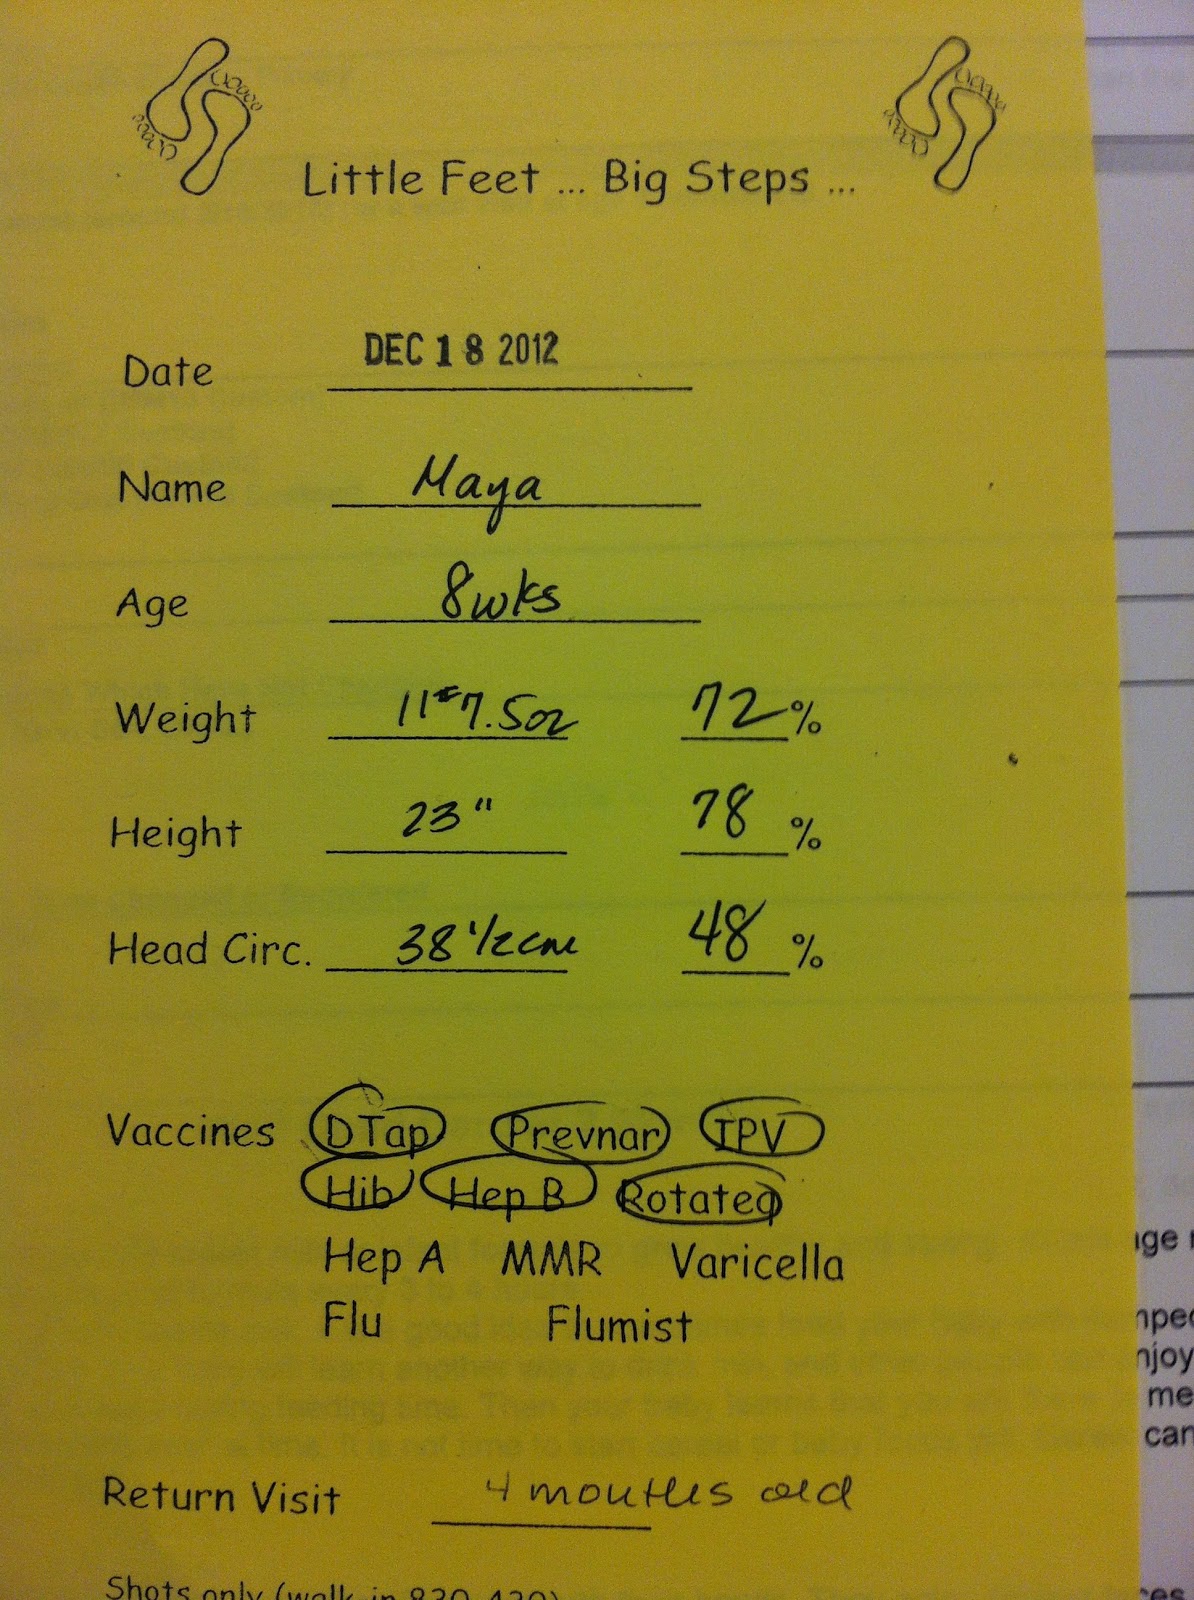 Little Feet ... Big Steps ...
Date DEC 18 2012
Name Maya
Age 8wks
Weight 11# 7.5oz 72 %
Height 23" 78 %
Head Circ. 38 1/2 cm 48 %
Vaccines DTap Prevnar IPV
Hib Hep B Rotateq
Hep A MMR Varicella
Flu Flumist
Return Visit 4 months old
Shots only (walk-in 830-430)